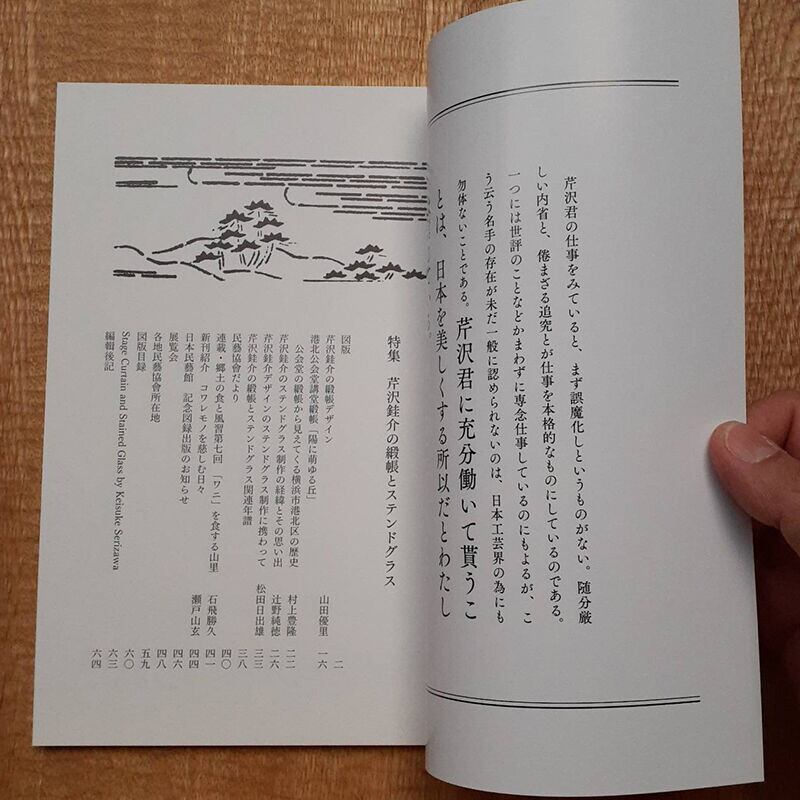 芹沢君の仕事をみていると、まず誤魔化しというものがない。随分厳
しい内省と、倦まざる追究とが仕事を本格的なものにしているのである。
一つには世評のことなどかまわずに専念仕事しているのにもよるが、こ
う云う名手の存在が未だ一般に認められないのは、日本工芸界の為にも
勿体ないことである。芹沢君に充分働いて貰うこ
とは、日本を美しくする所以だとわたし
特集 芹沢銈介の緞帳とステンドグラス
図版 二
芹沢銈介の緞帳デザイン 山田優里 一六
港北公会堂講堂緞帳「陽に萌ゆる丘」
公会堂の緞帳から見えてくる横浜市港北区の歴史 村上豊隆 二二
芹沢銈介のステンドグラス制作の経緯とその思い出 辻野純徳 二六
芹沢銈介デザインのステンドグラス制作に携わって 松田日出雄 三三
芹沢銈介の緞帳とステンドグラス関連年譜 三八
民藝協會だより 四〇
連載・郷土の食と風習第七回 「ワニ」を食する山里 石飛勝久 四一
新刊紹介 コワレモノを慈しむ日々 瀬戸山玄 四四
日本民藝館 記念図録出版のお知らせ 四六
展覧会 四八
各地民藝協會所在地 五九
図版目録 六〇
Stage Curtain and Stained Glass by Keisuke Serizawa 六三
編輯後記 六四